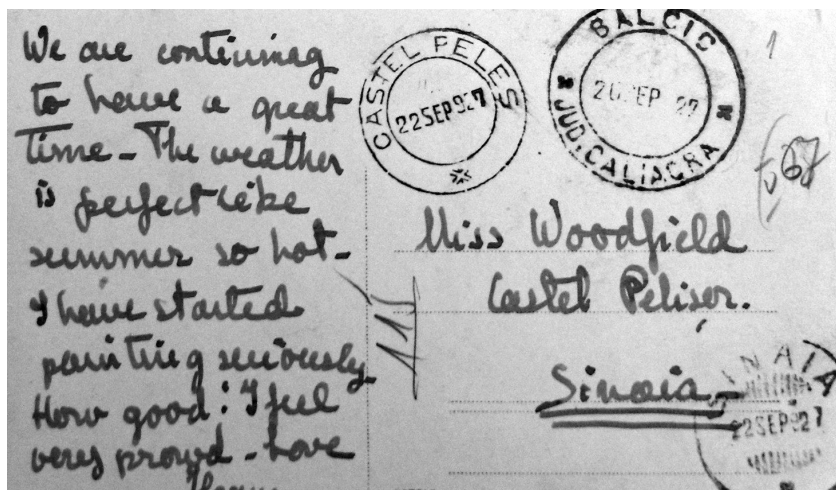 We are continuing
to have a great
time - The weather
is perfect like
summer so hot -
I have started
painting seriously
How good! I feel
very proud - Love
CASTEL PELES
22 SEP 927
BALCIC
20 SEP 27
JUD. CALIACRA
1
Miss Woodfield
Castel Pelisor.
115
Sinaia
SINAIA
22 SEP 927